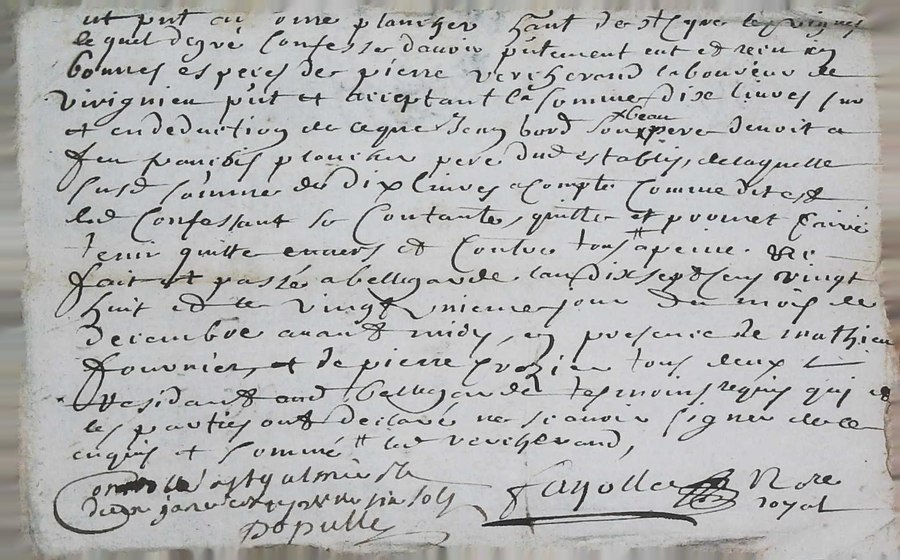 fut pnt en one plancher hant de st Cyr les vignes
lequel de gré Confesse davoir pntement eut et receu en
bonnes espeses de pierre vercherand laboureur de
Virignieu pnt et acceptant la somme dix livres sur
et en deduction de ce que Jean bord son beau pere devoit a
feu francois plancher pere dud establis, de laquelle
susd somme de dix livres a compte Comme dit est
led Confessant se Contante, quitte et promet
tenir quitte envers et Contre tous a peine
fait et passé a bellegarde lan dix sept cens vingt
huit et le vingt unieme jour du mois de
Decembre avant midy, en presence de mathieu
fournier, et de pierre tous deux
residant aud bellegarde tesmoins requis qui et
les parties ont declaré ne scavoir signer de ce
enquis et sommé led vercherand,
Con
janvier sols
Populle
fayolle Nore
royal